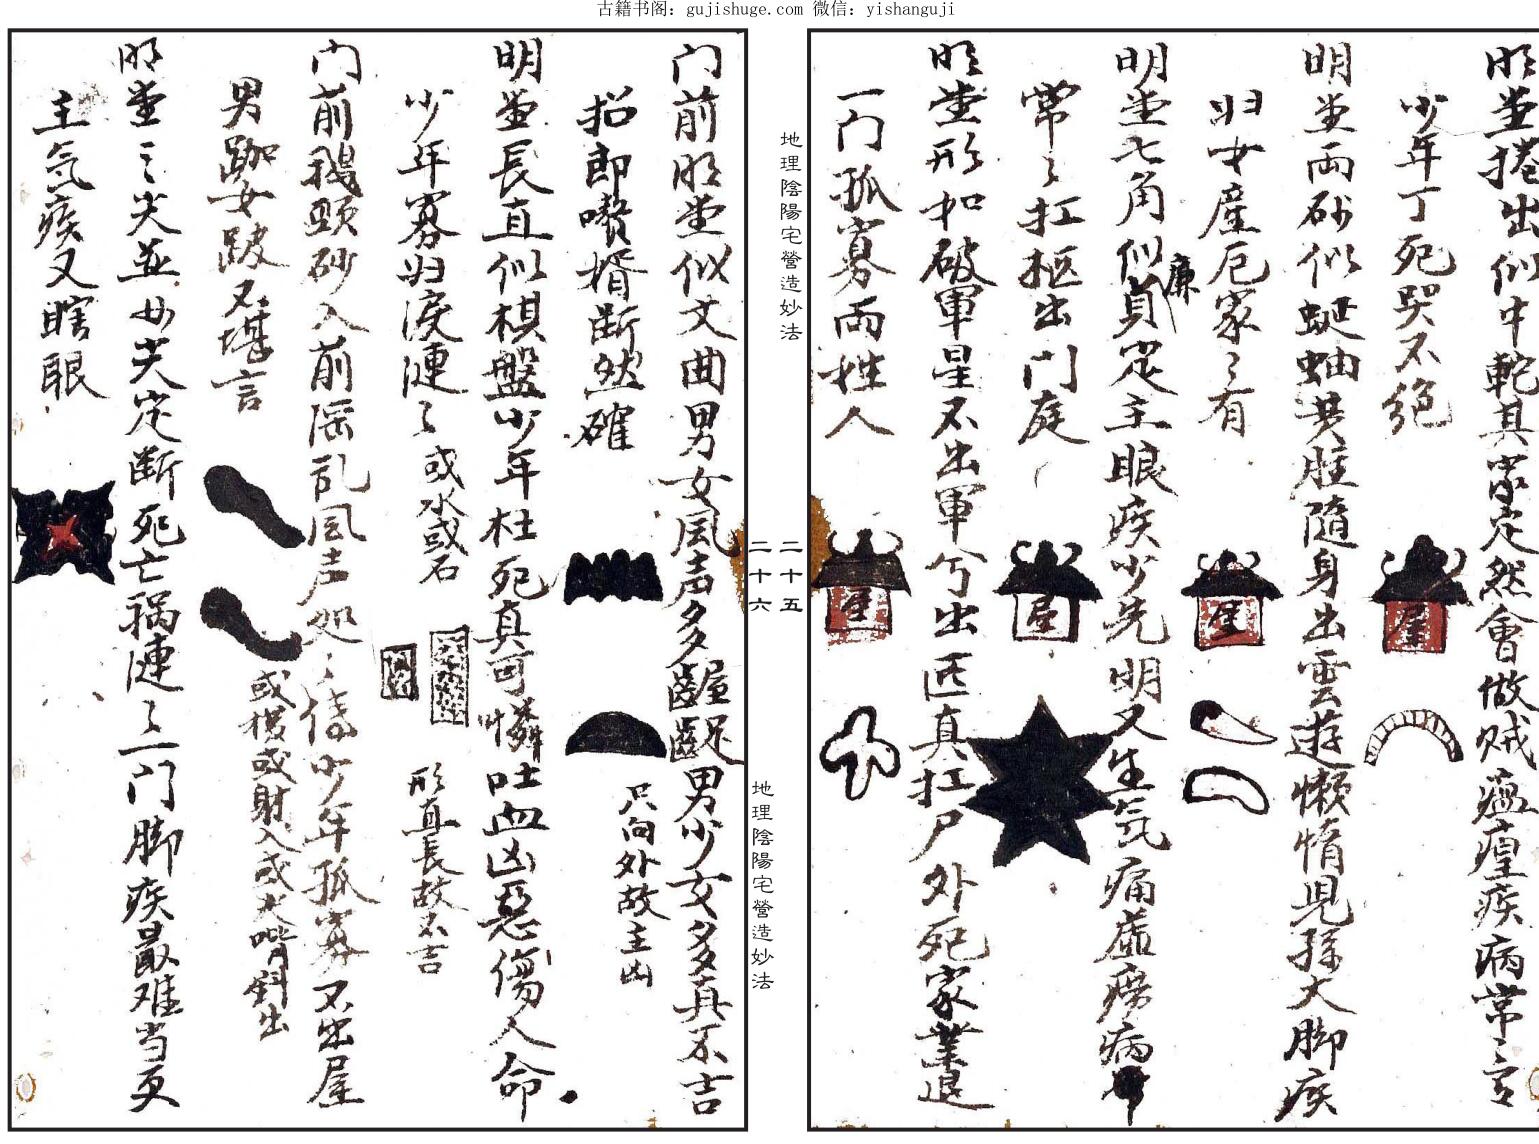 古籍书阁：gujishuge.com 微信：yishanguji
明堂捲出似中軛其家定然會做贼瘟瘟疾病常言
少年丁死哭不绝
屋
明堂両砂似蜒蚰共脏隨身出雲遊懒惰見孫大脚疾
归女産厄家〻有
屋
明堂七角似廉貞定主眼疾少先明又生氣痛虚痨病
常〻扛抠出门庭
屋
明堂形如破軍星不出軍兮出匠真扛尸外死家業退
一门孤寡両姓人
屋
地理陰陽宅營造妙法
二十五
门前明堂似文曲男女風声多龌龊男少女多真不吉
招郎嚟婿断然確
只向外故主凶
明堂長直似棋盤少年枉死真可憐吐血凶惡傷人命
少年寡归淚連〻
或水或石
形直長故不吉
门前鵝頸砂入前淫乱風声処〻傳少年孤寡不出屋
男跏女跛不堪言
或横或射入或大嘴斜出
明堂三尖並四尖定断死亡祸連〻一门脚疾最难当更
主气疾又瞎眼
二十六
地理陰陽宅營造妙法